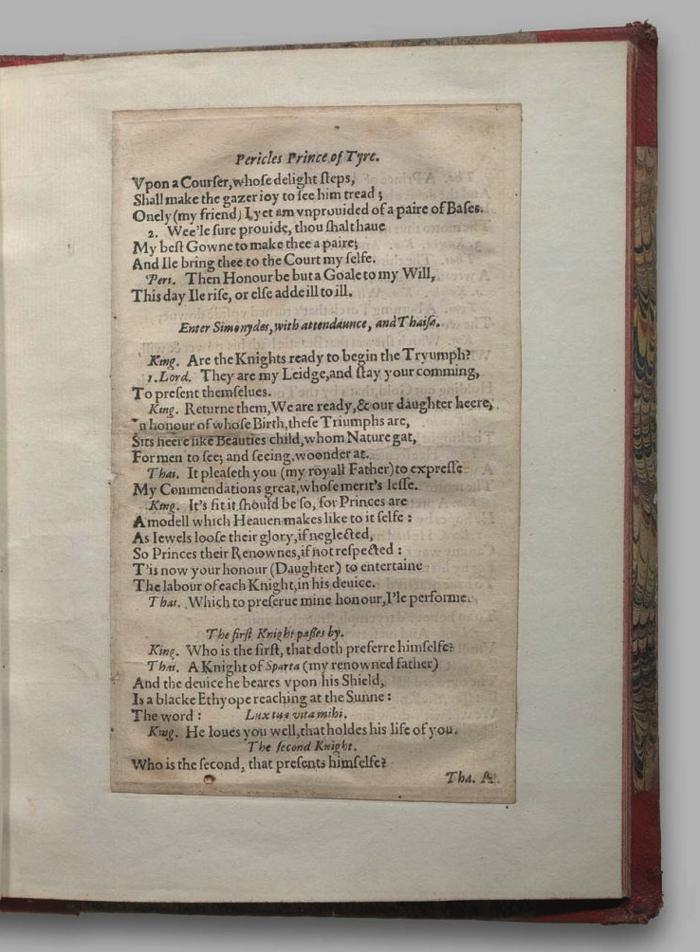 Pericles Prince of Tyre.
Vpon a Courser, whose delight steps,
Shall make the gazer ioy to see him tread;
Onely (my friend) I yet am vnprouided of a paire of Bases.
2. Wee'le sure prouide, thou shalt haue
My best Gowne to make thee a paire;
And Ile bring thee to the Court my selfe.
Peri. Then Honour be but a Goale to my Will,
This day Ile rise, or else adde ill to ill.
Enter Simonydes, with attendaunce, and Thaisa.
King. Are the Knights ready to begin the Tryumph?
1. Lord. They are my Leidge, and stay your comming,
To present themselues.
King. Returne them, We are ready, & our daughter heere,
In honour of whose Birth, these Triumphs are,
Sits heere like Beauties child, whom Nature gat,
For men to see; and seeing, woonder at.
Thai. It pleaseth you (my royall Father) to expresse
My Commendations great, whose merit's lesse.
King. It's fit it should be so, for Princes are
A modell which Heauen makes like to it selfe:
As Iewels loose their glory, if neglected,
So Princes their Renownes, if not respected:
T'is now your honour (Daughter) to entertaine
The labour of each Knight, in his deuice.
Thai. Which to preserue mine honour, I'le performe.
The first Knight passes by.
King. Who is the first, that doth preferre himselfe?
Thai. A Knight of Sparta (my renowned father)
And the deuice he beares vpon his Shield,
Is a blacke Ethyope reaching at the Sunne:
The word: Lux tua vita mihi.
King. He loues you well, that holdes his life of you.
The second Knight.
Who is the second, that presents himselfe?
Tha. A